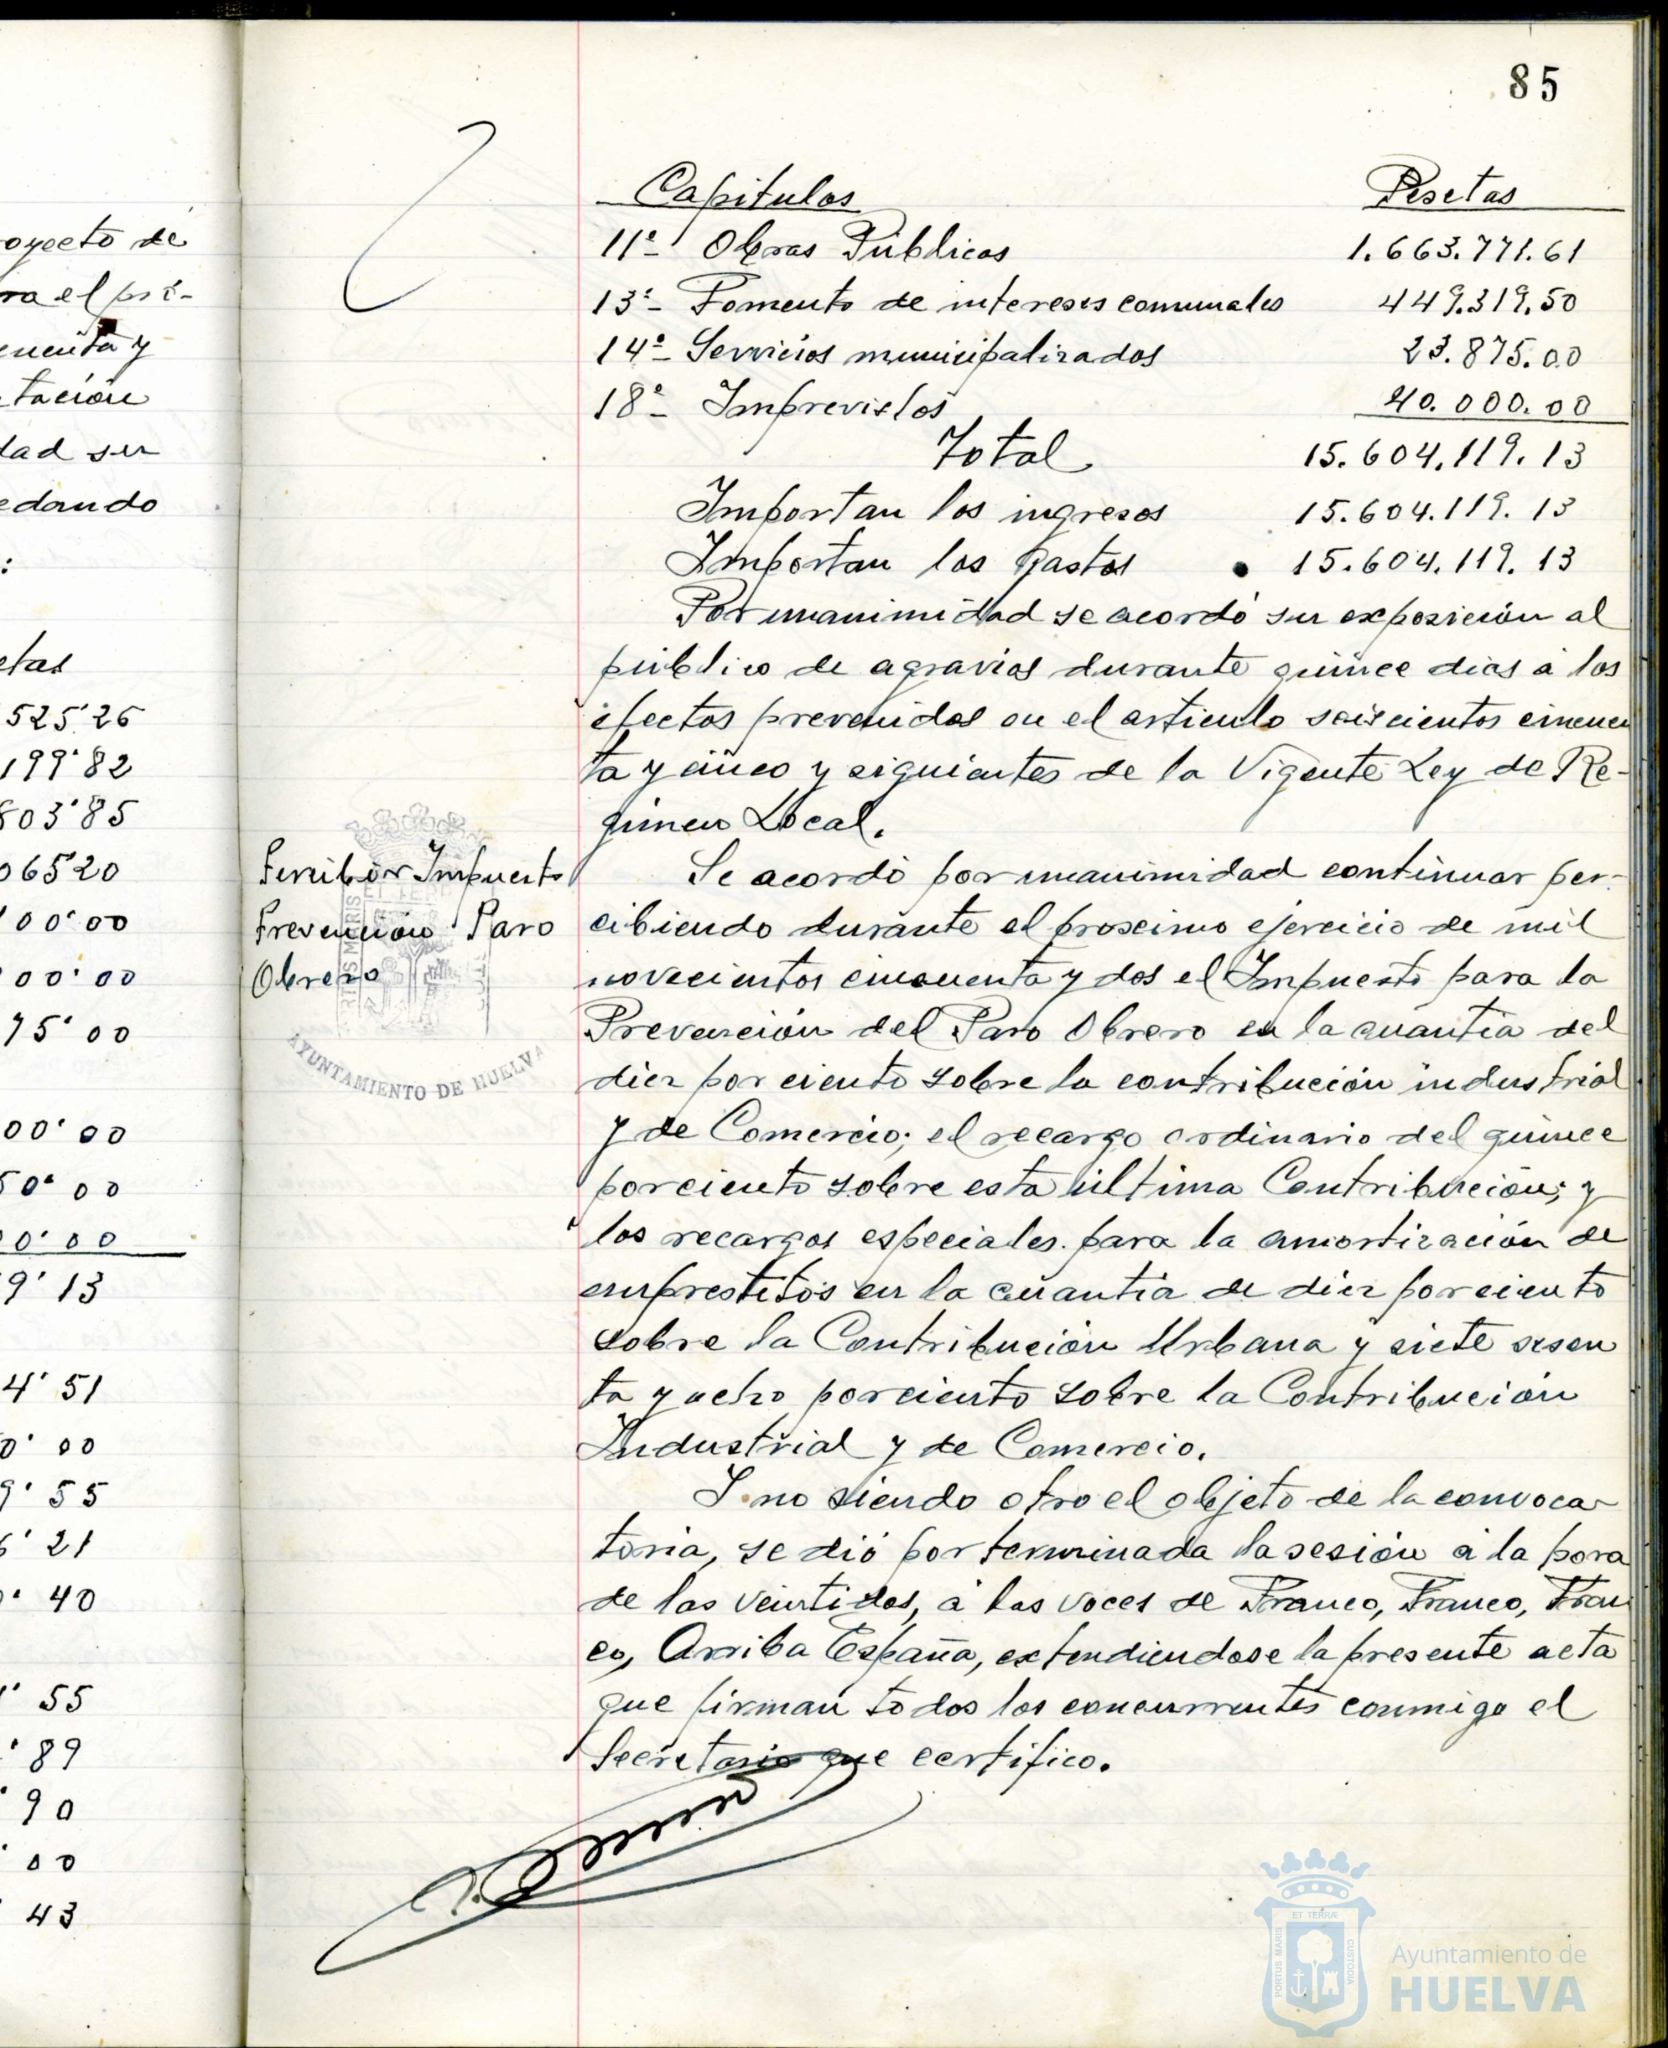 85
Capitulos Pesetas
11º Obras Públicas 1.663.771.61
13º- Fomento de intereses comunales 449.319.50
14º- Servicios municipalizados 23.875.00
18º- Imprevistos 40.000.00
Total 15.604.119.13
Importan los ingresos 15.604.119.13
Importan los gastos 15.604.119.13
Por unanimidad se acordó su exposición al
público de agravios durante quince dias á los
efectos prevenidos en el articulo seiscientos cincuen
ta y cinco y siguientes de la Vigente Ley de Re-
gimen Local.
Percibir Impuesto
Prevención Paro
Obrero
Se acordó por unanimidad continuar per-
cibiendo durante el proximo ejercicio de mil
novecientos cincuenta y dos el Impuesto para la
Prevención del Paro Obrero en la cuantia del
diez por ciento sobre la contribución industrial
y de Comercio; el recargo ordinario del quince
por ciento sobre esta última Contribución; y
los recargos especiales para la amortización de
emprestitos en la cuantia de diez por ciento
sobre la Contribución Urbana y siete sesen
ta y ocho por ciento sobre la Contribución
Industrial y de Comercio.
Y no siendo otro el objeto de la convoca-
toria, se dió por terminada la sesión á la hora
de las veintidos, á las voces de Franco, Franco, Fran
co, Arriba España, extendiendose la presente acta
que firman todos los concurrentes conmigo el
Secretario que certifico.
AYUNTAMIENTO DE HUELVA
oyecto de
ra el pri-
cuenta y
tación
dad su
edando
:
etas
525'26
199'82
803'85
065'20
100'00
00'00
75'00
00'00
50'00
00'00
9'13
4'51
0'00
9'55
6'21
0'40
1'55
'89
'90
'00
43
PORTUS MARIS
ET TERRÆ
CUSTODIA
Ayuntamiento de
HUELVA